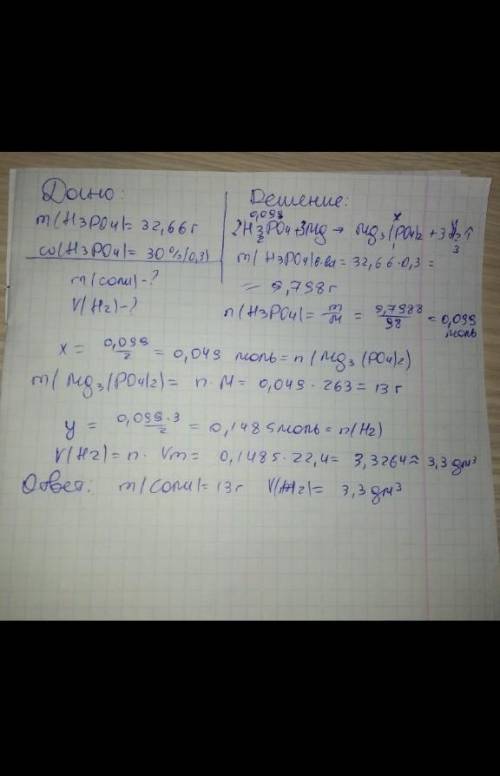 Дано:
m(H3PO4)= 32,66г
ω(H3PO4)= 30%(0,3)
m(соли)-?
V(H2)-?
Решение:
0,099 x y
2H3PO4+3Mg → Mg3(PO4)2 + 3H2↑
2 3
m(H3PO4)в-ва= 32,66·0,3 =
= 9,798г
n(H3PO4)= m/M = 9,7988/98 = 0,099 моль
x = 0,099/2 = 0,049 моль= n(Mg3(PO4)2)
m(Mg3(PO4)2)= n·M= 0,049·263= 13г
y = 0,099·3/2 = 0,1485моль= n(H2)
V(H2)= n·Vm= 0,1485·22,4= 3,3264≈ 3,3дм³
Ответ: m(соли)= 13г V(H2)= 3,3дм³